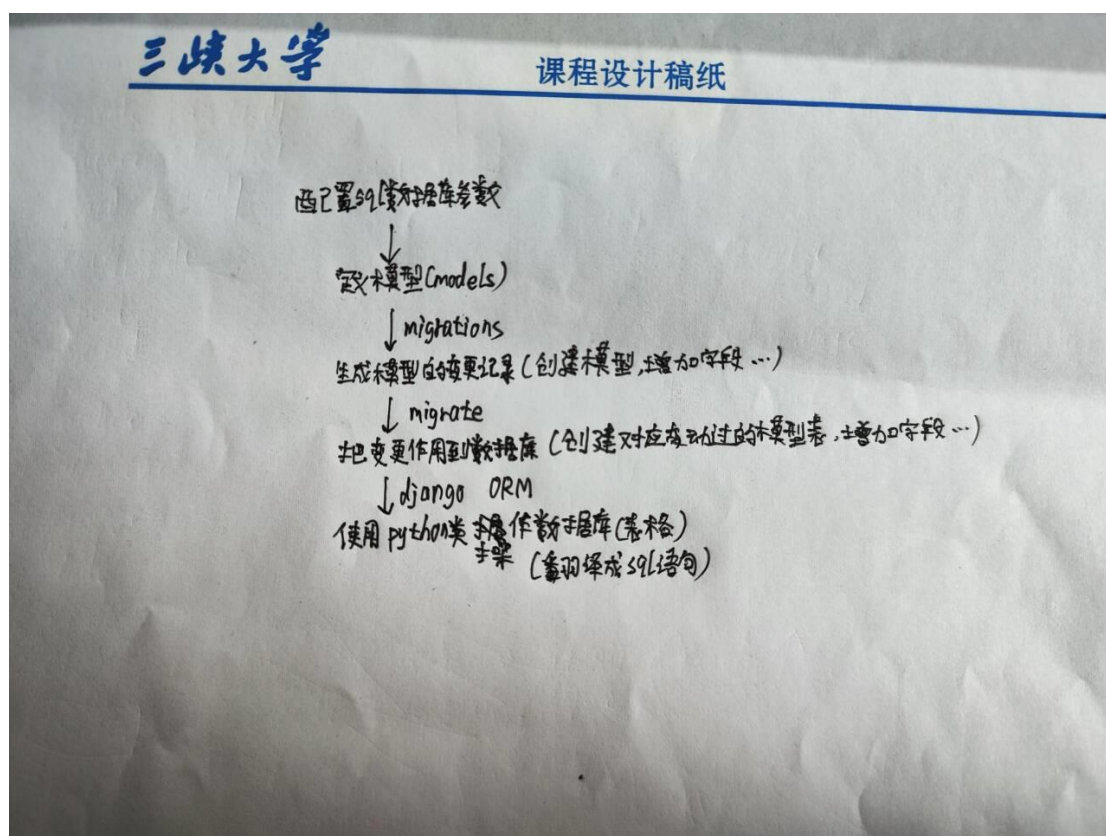 三峡大学
课程设计稿纸
配置sql数据库参数
↓
定义模型(models)
↓ migrations
生成模型的变更记录(创建模型,增加字段…)
↓ migrate
把变更作用到数据库(创建对应变动过的模型表,增加字段…)
↓ django ORM
使用python类操作数据库(表格)
操
(翻译成sql语句)